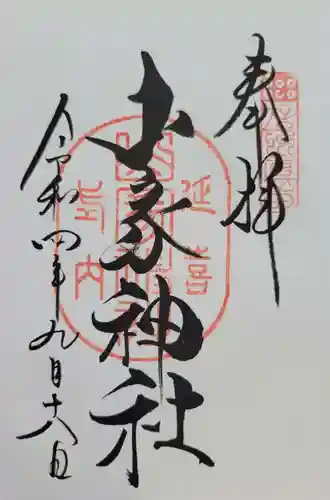 奉拝
山家神社
延喜
式内
令和四年九月十六日